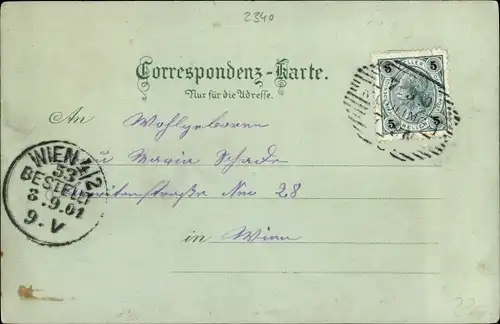 2340
Correspondenz-Karte.
Nur für die Adresse.
5 HELLER 5
An Wohlgeboren
Maria Schade
No 28
in Wien
WIEN 4/2
53
BESTELLT
3.9.01
9.V